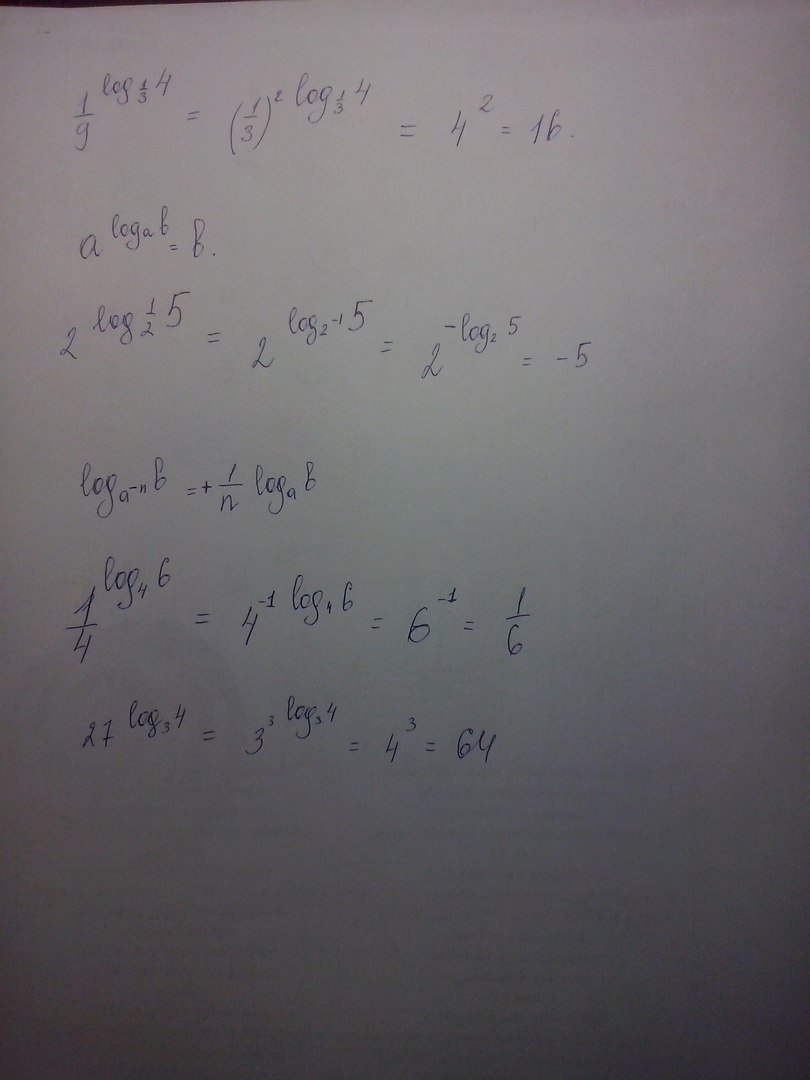 1/9^log_{1/3} 4 = (1/3)^{2 log_{1/3} 4} = 4^2 = 16.
a^{log_a b} = b.
2^{log_{1/2} 5} = 2^{log_{2^{-1}} 5} = 2^{-log_2 5} = -5
log_{a^{-n}} b = + 1/n log_a b
1/4^{log_4 6} = 4^{-1 log_4 6} = 6^{-1} = 1/6
27^{log_3 4} = 3^{3 log_3 4} = 4^3 = 64